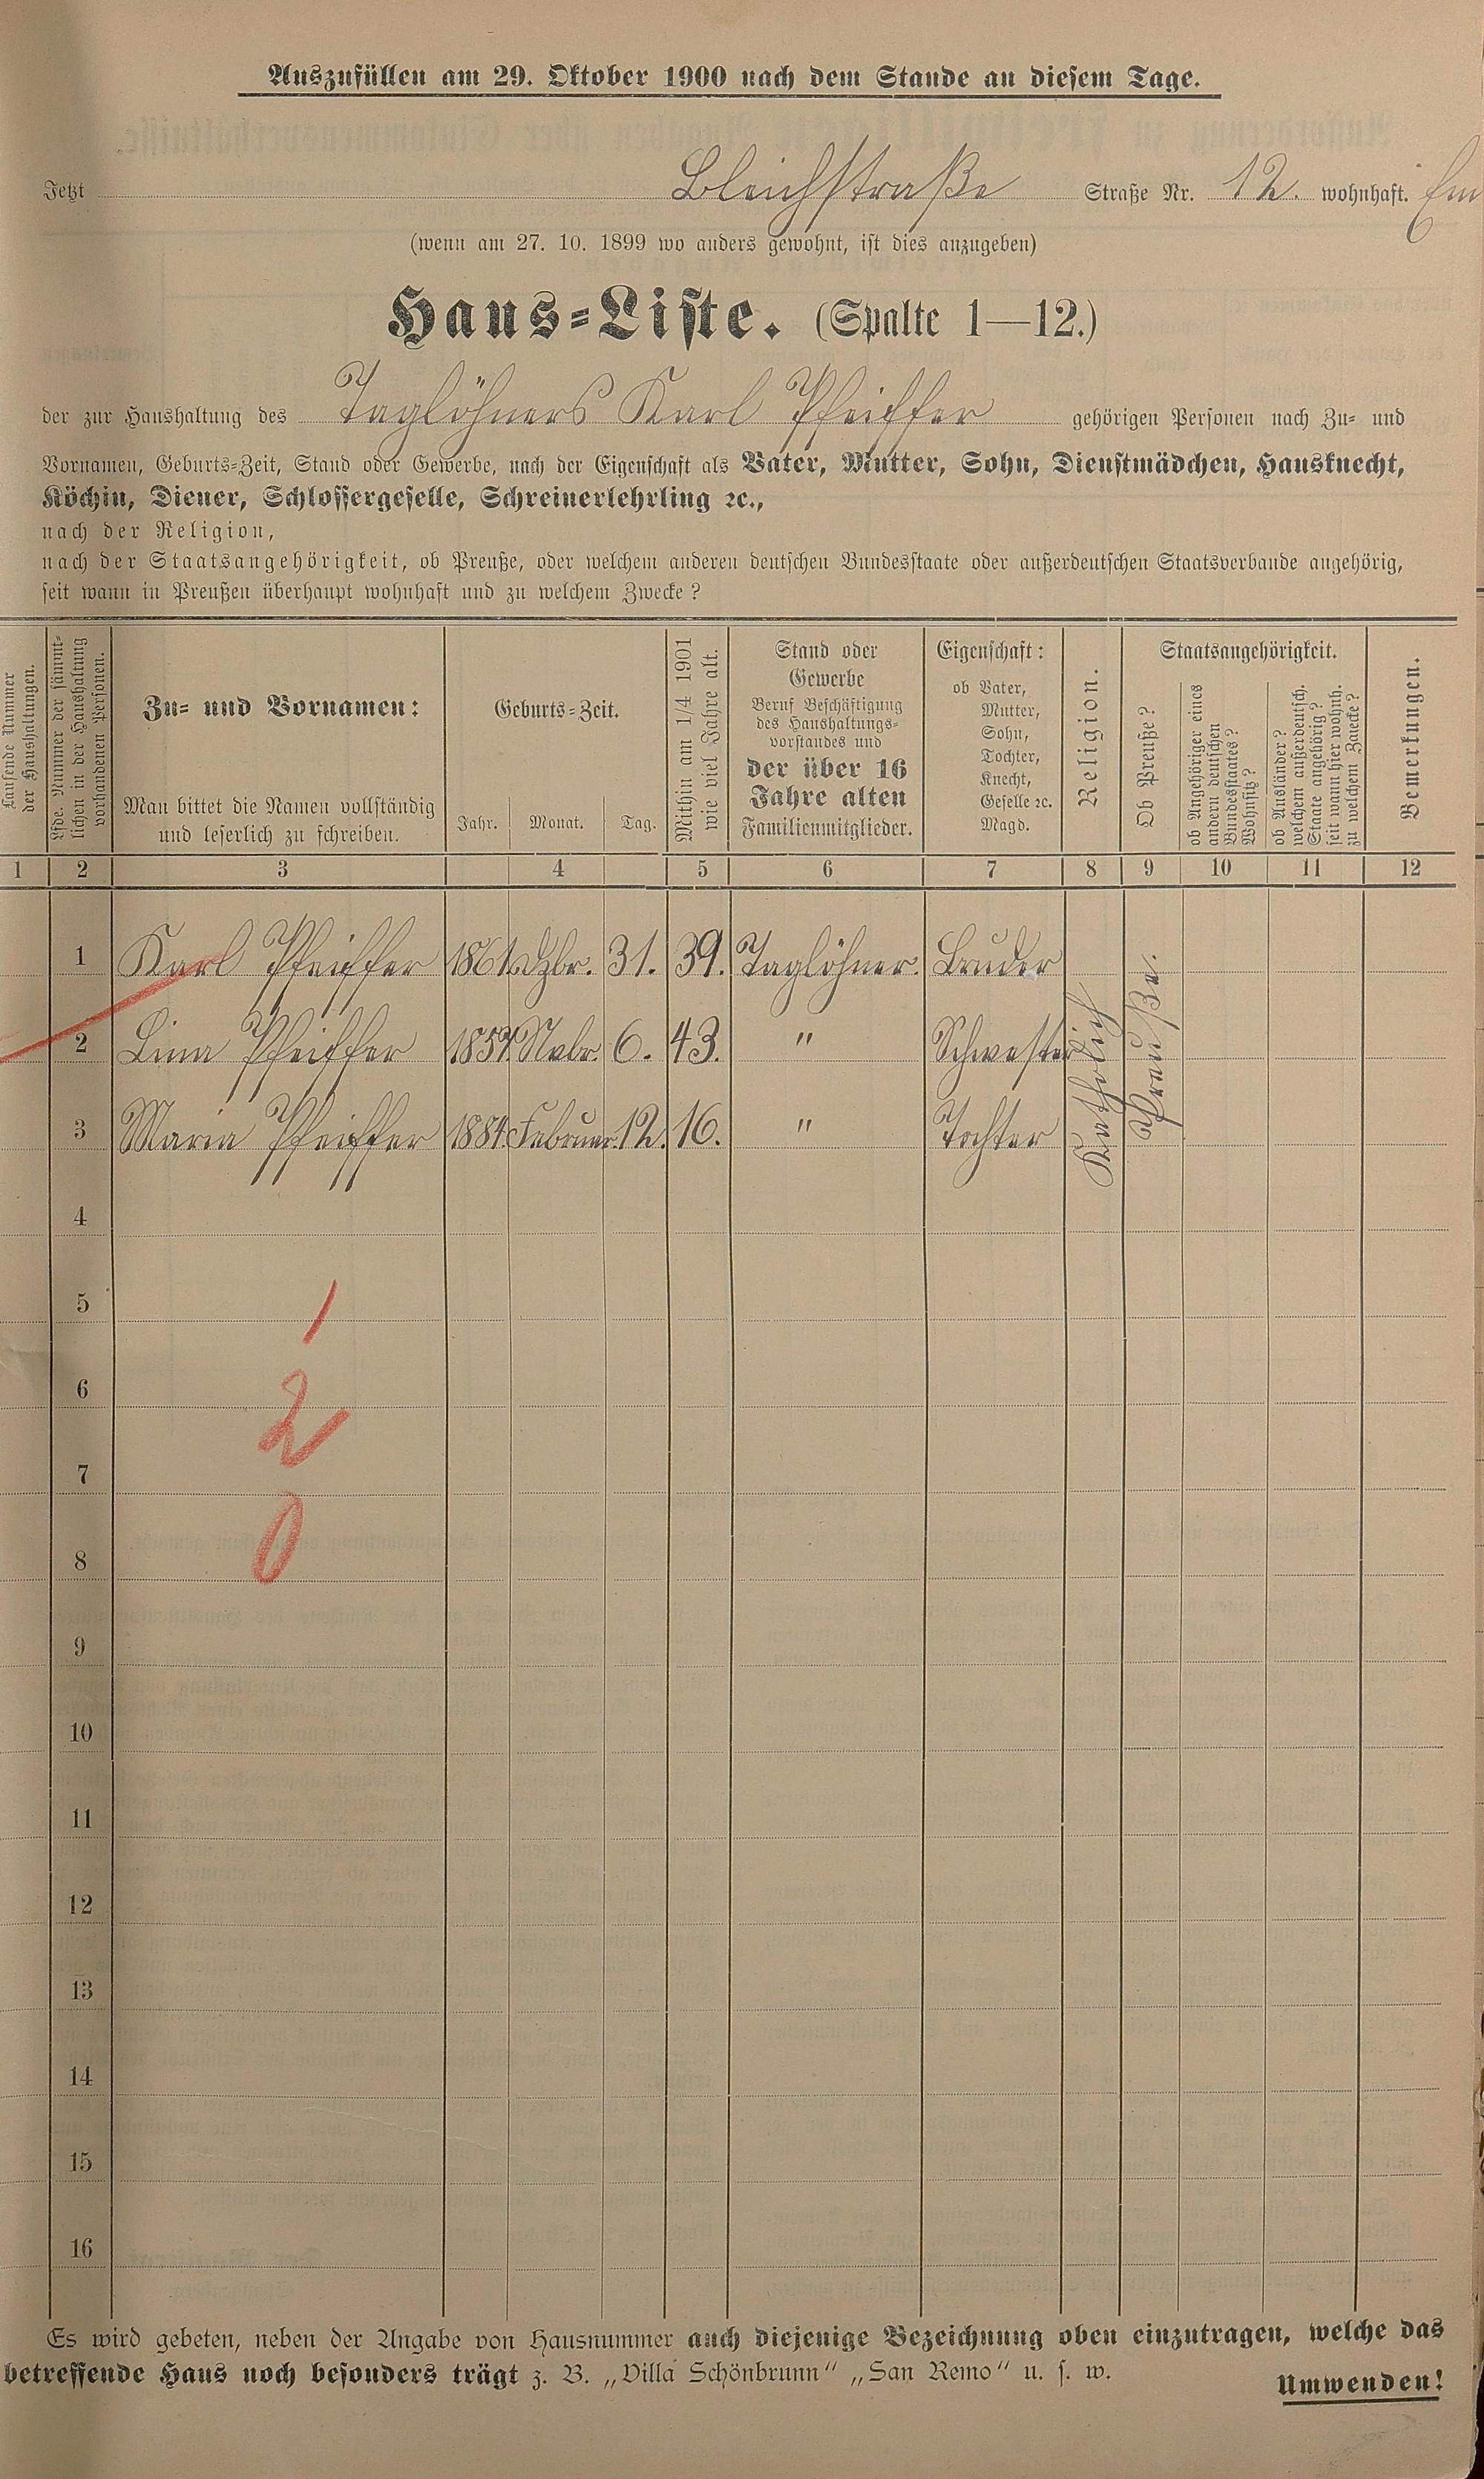 Auszufüllen am 29. Oktober 1900 nach dem Stande an diesem Tage.
Jetzt Bleichstraße Straße Nr. 12. wohnhaft.
(wenn am 27. 10. 1899 wo anders gewohnt, ist dies anzugeben)
Haus-Liste. (Spalte 1—12.)
der zur Haushaltung des Taglöhners Karl Pfeiffer gehörigen Personen nach Zu- und
Vornamen, Geburts-Zeit, Stand oder Gewerbe, nach der Eigenschaft als Vater, Mutter, Sohn, Dienstmädchen, Hausknecht,
Köchin, Diener, Schlossergeselle, Schreinerlehrling ꝛc.,
nach der Religion,
nach der Staatsangehörigkeit, ob Preuße, oder welchem anderen deutschen Bundesstaate oder außerdeutschen Staatsverbande angehörig,
seit wann in Preußen überhaupt wohnhaft und zu welchem Zwecke?
Laufende Nummer
der Haushaltungen.
Lfde. Nummer der sämmt-
lichen in der Haushaltung
vorhandenen Personen.
Zu- und Vornamen:
Man bittet die Namen vollständig
und leserlich zu schreiben.
Geburts-Zeit.
Jahr. Monat. Tag.
Mithin am 1/4 1901
wie viel Jahre alt.
Stand oder
Gewerbe
Beruf Beschäftigung
des Haushaltungs-
vorstandes und
der über 16
Jahre alten
Familienmitglieder.
Eigenschaft:
ob Vater,
Mutter,
Sohn,
Tochter,
Knecht,
Geselle ꝛc.
Magd.
Religion.
Staatsangehörigkeit.
Ob Preuße?
ob Angehöriger eines
andern deutschen
Bundesstaates?
Wohnsitz?
ob Ausländer?
welchem außerdeutsch.
Staate angehörig?
seit wann hier wohnh.
zu welchem Zwecke?
Bemerkungen.
1 2 3 4 5 6 7 8 9 10 11 12
1 Karl Pfeiffer 1861. Dzbr. 31. 39. Taglöhner. Bruder
2 Lina Pfeiffer 1857. Nvbr. 6. 43. " Schwester
3 Maria Pfeiffer 1884. Februar. 12. 16. " Tochter
Katholich
Preuße.
4
5
1
6
2
7
8
0
9
10
11
12
13
14
15
16
Es wird gebeten, neben der Angabe von Hausnummer auch diejenige Bezeichnung oben einzutragen, welche das
betreffende Haus noch besonders trägt z. B. „Villa Schönbrunn" „San Remo" u. s. w.
Umwenden!